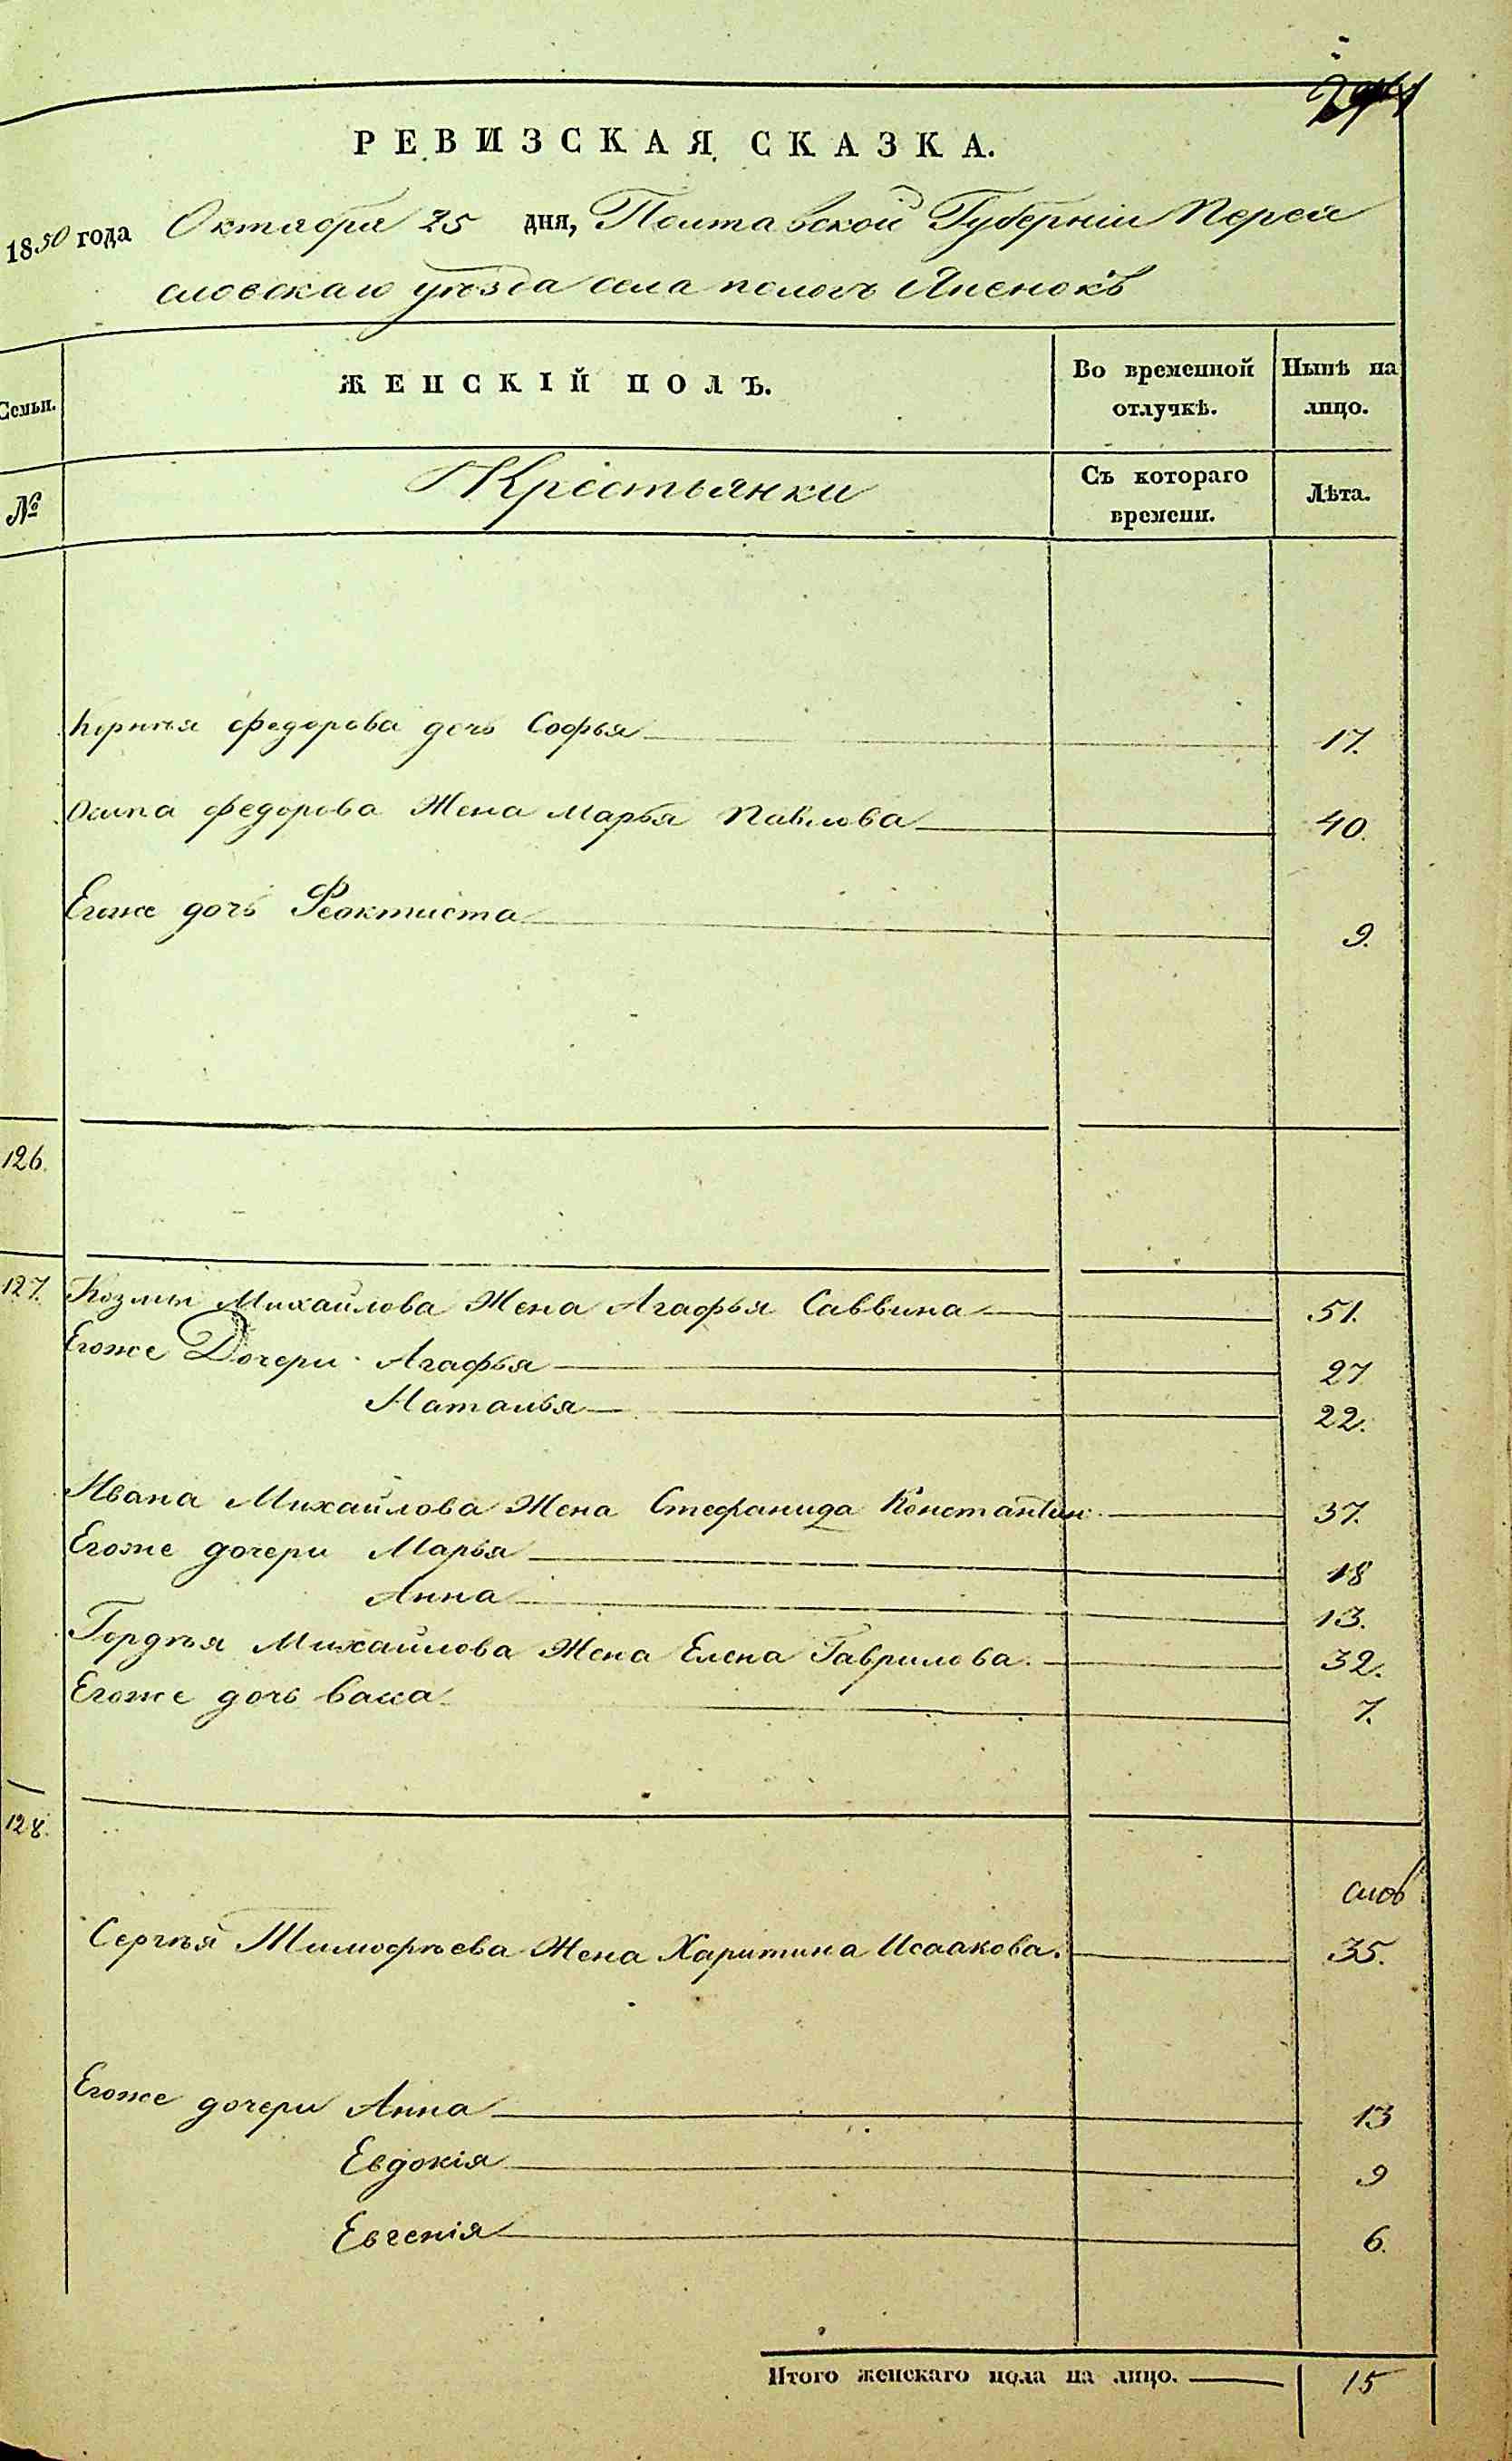 РЕВИЗСКАЯ СКАЗКА.
1850 года Октября 25 дня, Полтавской Губерніи Перея
словскаго уѣзда села пологъ Яненокъ
Семьи. ЖЕНСКІЙ ПОЛЪ. Во временной отлучкѣ. Нынѣ на лицо.
№ Крестьянки Съ котораго времени. Лѣта.
Корнѣя Федорова дочь Софья 17.
Осипа Федорова Жена Марья Павлова 40.
Егоже дочь Феоктиста 9.
126.
127. Козмы Михайлова Жена Агафья Саввина 51.
Егоже Дочери Агафья 27
Наталья 22.
Ивана Михайлова Жена Стефанида Константин: 37.
Егоже дочери Марья 18
Анна 13.
Гордѣя Михайлова Жена Елена Гаврилова. 32.
Егоже дочь Васса 7.
128.
Сергѣя Тимофѣева Жена Харитина Исаакова. 35.
Егоже дочери Анна 13
Евдокія 9
Евгенія 6.
Итого женскаго пола на лицо. 15